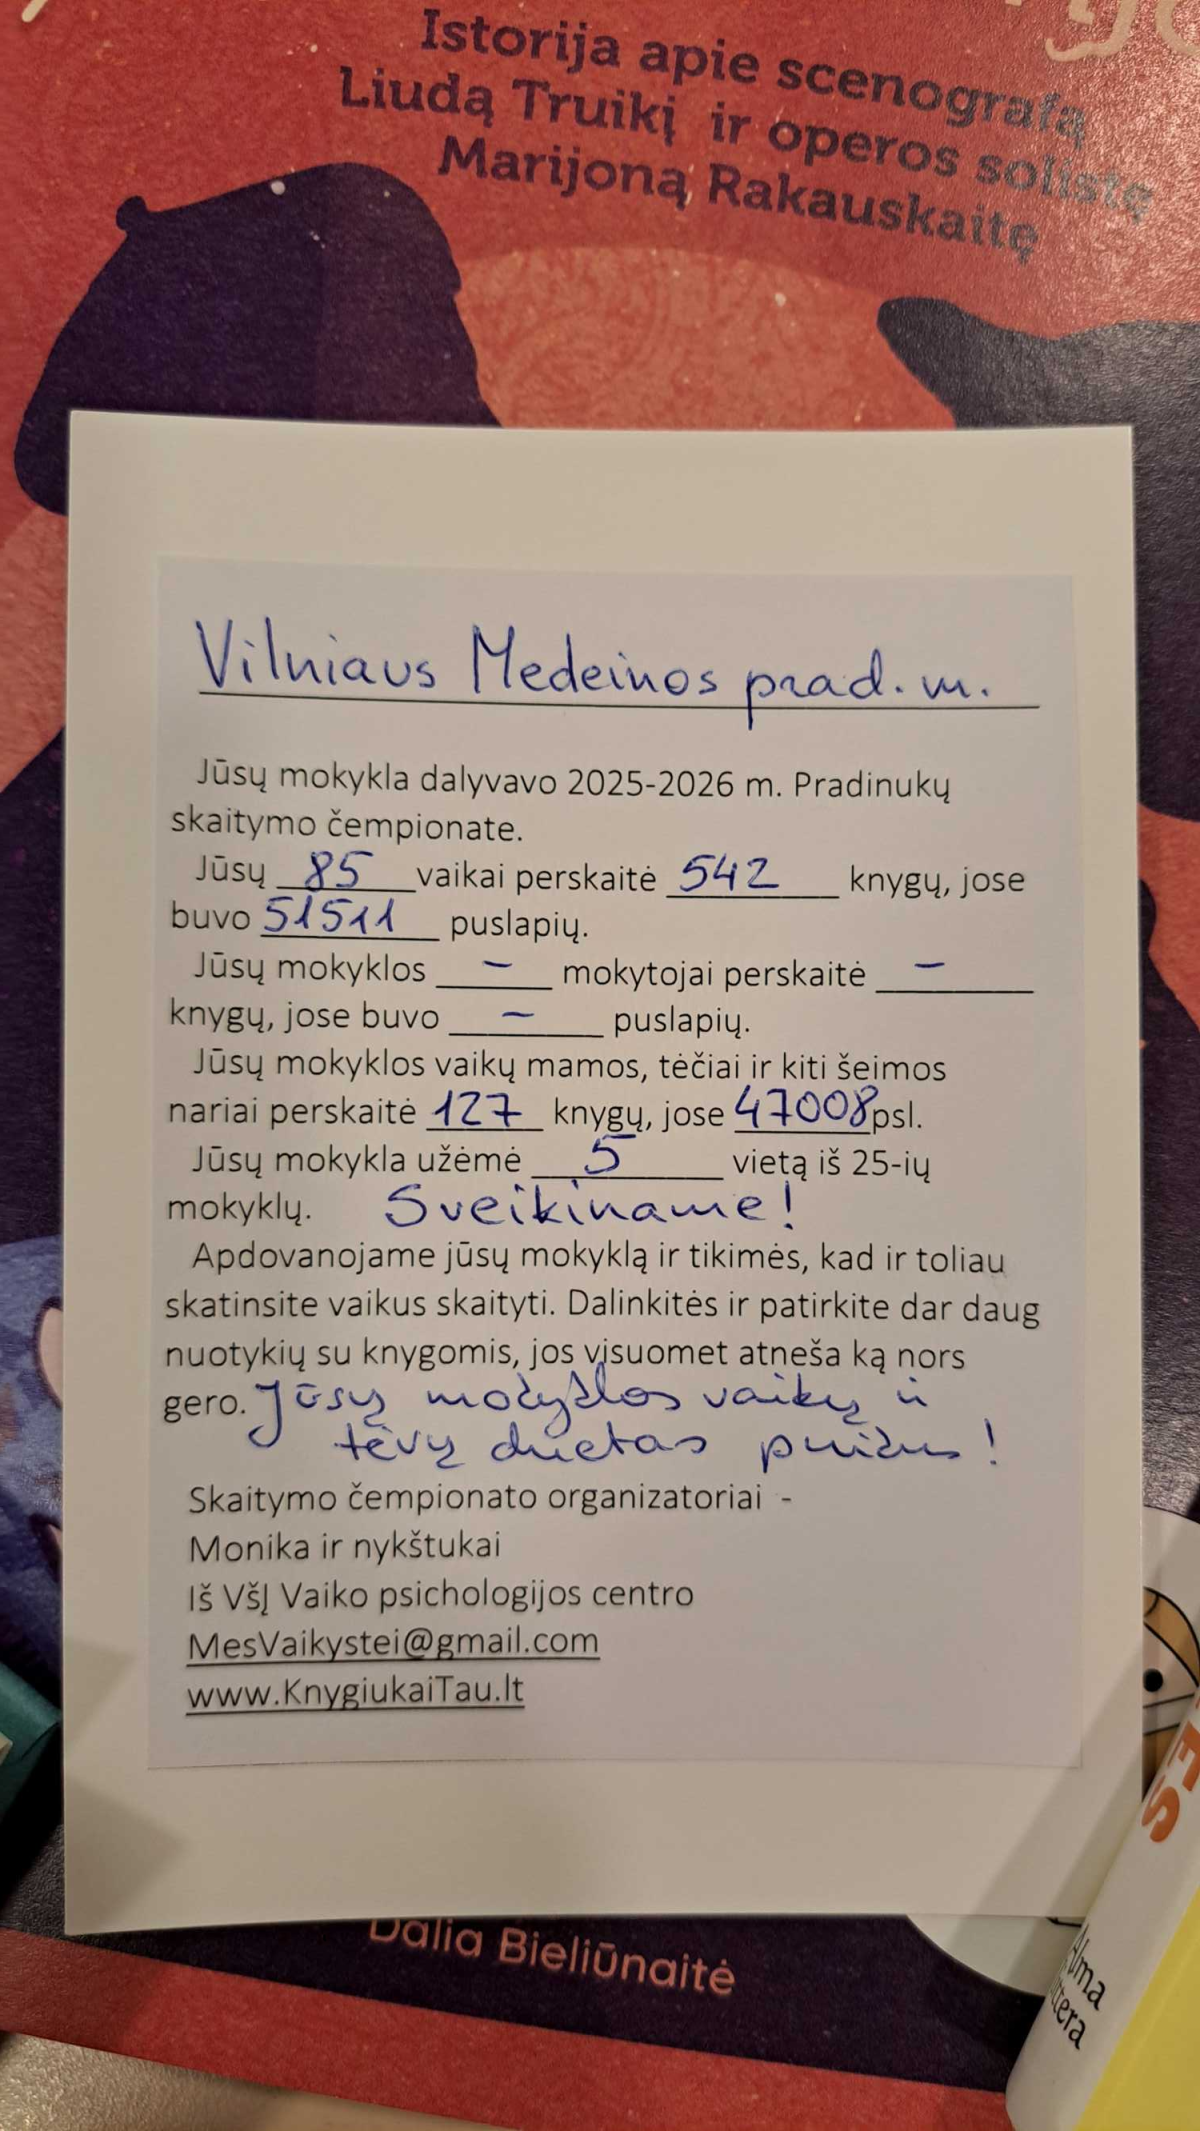 Istorija apie scenografą
Liudą Truikį ir operos solistę
Marijoną Rakauskaitę
Vilniaus Medeinos prad. m.
Jūsų mokykla dalyvavo 2025-2026 m. Pradinukų
skaitymo čempionate.
Jūsų 85 vaikai perskaitė 542 knygų, jose
buvo 51511 puslapių.
Jūsų mokyklos – mokytojai perskaitė –
knygų, jose buvo – puslapių.
Jūsų mokyklos vaikų mamos, tėčiai ir kiti šeimos
nariai perskaitė 127 knygų, jose 47008 psl.
Jūsų mokykla užėmė 5 vietą iš 25-ių
mokyklų. Sveikiname!
Apdovanojame jūsų mokyklą ir tikimės, kad ir toliau
skatinsite vaikus skaityti. Dalinkitės ir patirkite dar daug
nuotykių su knygomis, jos visuomet atneša ką nors
gero. Jūsų mokyklos vaikų ir
tėvų duetas puikus!
Skaitymo čempionato organizatoriai -
Monika ir nykštukai
Iš VšĮ Vaiko psichologijos centro
MesVaikystei@gmail.com
www.KnygiukaiTau.lt
Dalia Bieliūnaitė
Alma
littera